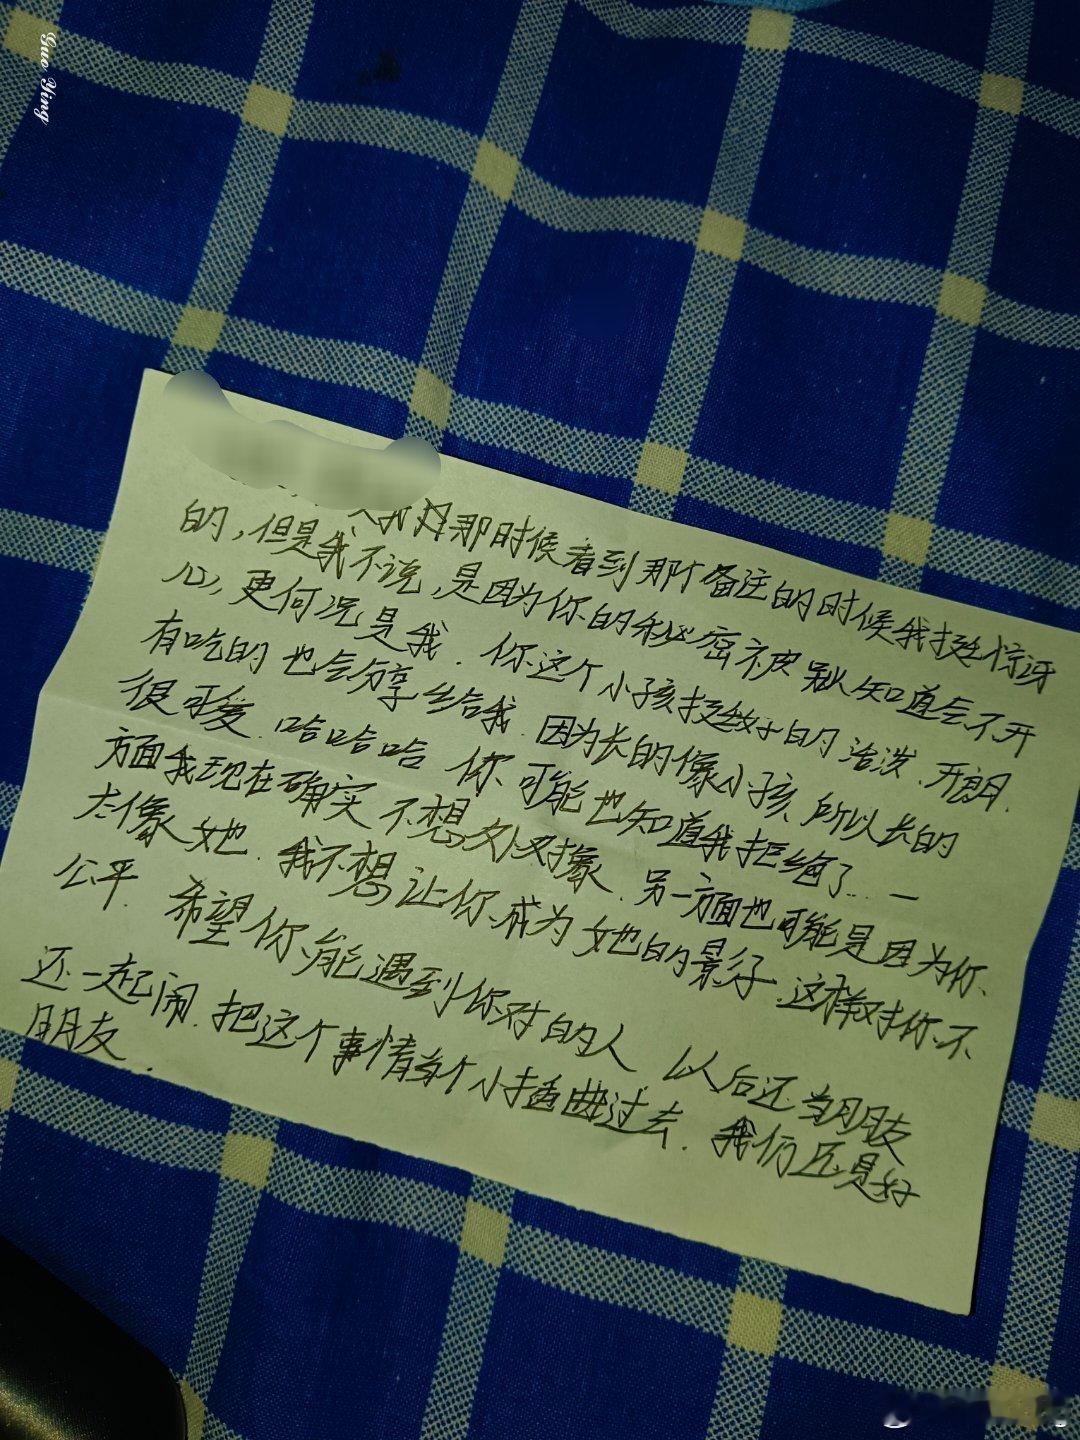 Guo Ying
那时候看到那个备注的时候我挺惊讶
的,但是我不说,是因为你的秘密被别人知道会不开
心,更何况是我.你这个小孩挺好的活泼.开朗.
有吃的也会分享给我.因为长的像小孩,所以长的
很可爱.哈哈哈 你可能也知道我拒绝了...一
方面我现在确实不想处对象.另一方面也可能是因为你
太像她.我不想让你成为她的影子.这样对你不
公平.希望你能遇到你对的人 以后还当朋友
还一起闹.把这个事情当个小插曲过去.我们还是好
朋友.